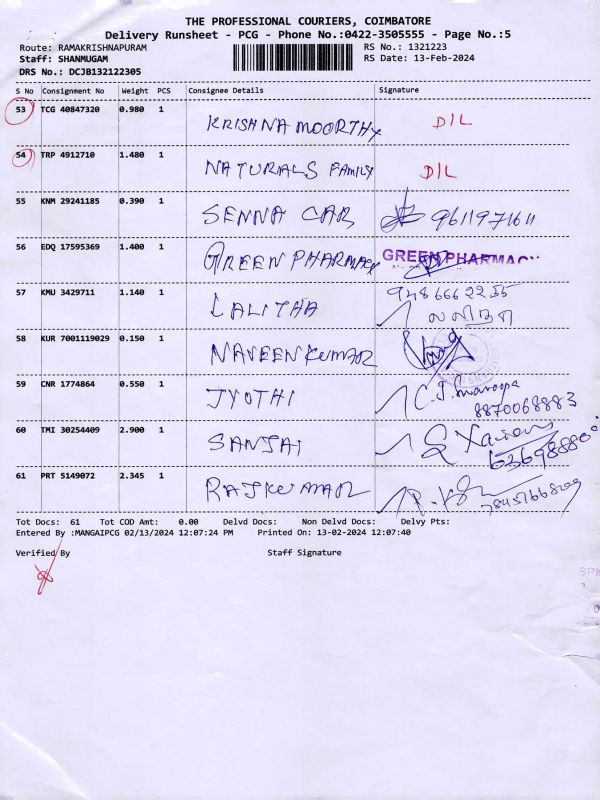 THE PROFESSIONAL COURIERS, COIMBATORE
Delivery Runsheet - PCG - Phone No.:0422-3505555 - Page No.:5
Route: RAMAKRISHNAPURAM RS No.: 1321223
Staff: SHANMUGAM RS Date: 13-Feb-2024
DRS No.: DCJB132122305
S No Consignment No Weight PCS Consignee Details Signature
53 TCG 40847320 0.980 1 KRISHNA MOORTHY D/L
54 TRP 4912710 1.480 1 NATURALS FAMILY D/L
55 KNM 29241185 0.390 1 SENNA CAB 9611971611
56 EDQ 17595369 1.400 1 GREEN PHARMACY GREEN PHARMACY
57 KMU 3429711 1.140 1 LALITHA 9486662255
லலிதா
58 KUR 7001119029 0.150 1 NAVEEN KUMAR
59 CNR 1774864 0.550 1 JYOTHI C.J.
8870068883
60 TMI 30254409 2.900 1 SANJAI
61 PRT 5149072 2.345 1 RAJKUMAR
Tot Docs: 61 Tot COD Amt: 0.00 Delvd Docs: Non Delvd Docs: Delvy Pts:
Entered By :MANGAIPCG 02/13/2024 12:07:24 PM Printed On: 13-02-2024 12:07:40
Verified By Staff Signature